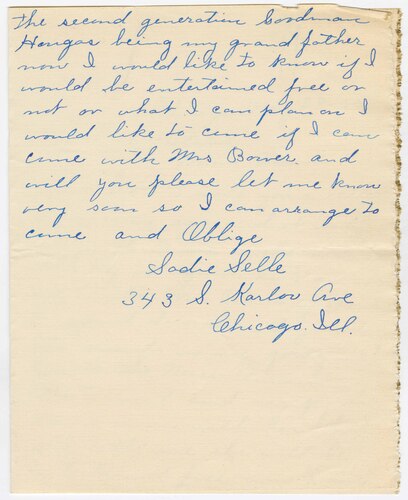 the second generation Goodman
Hongas being my grand father
now I would like to know if I
would be entertained free or
not or what I can plan on I
would like to come if I can
come with Mrs Bower and
will you please let me know
very soon so I can arrange to
come and Oblige
Sadie Selle
343 S. Karlov Ave
Chicago. Ill.